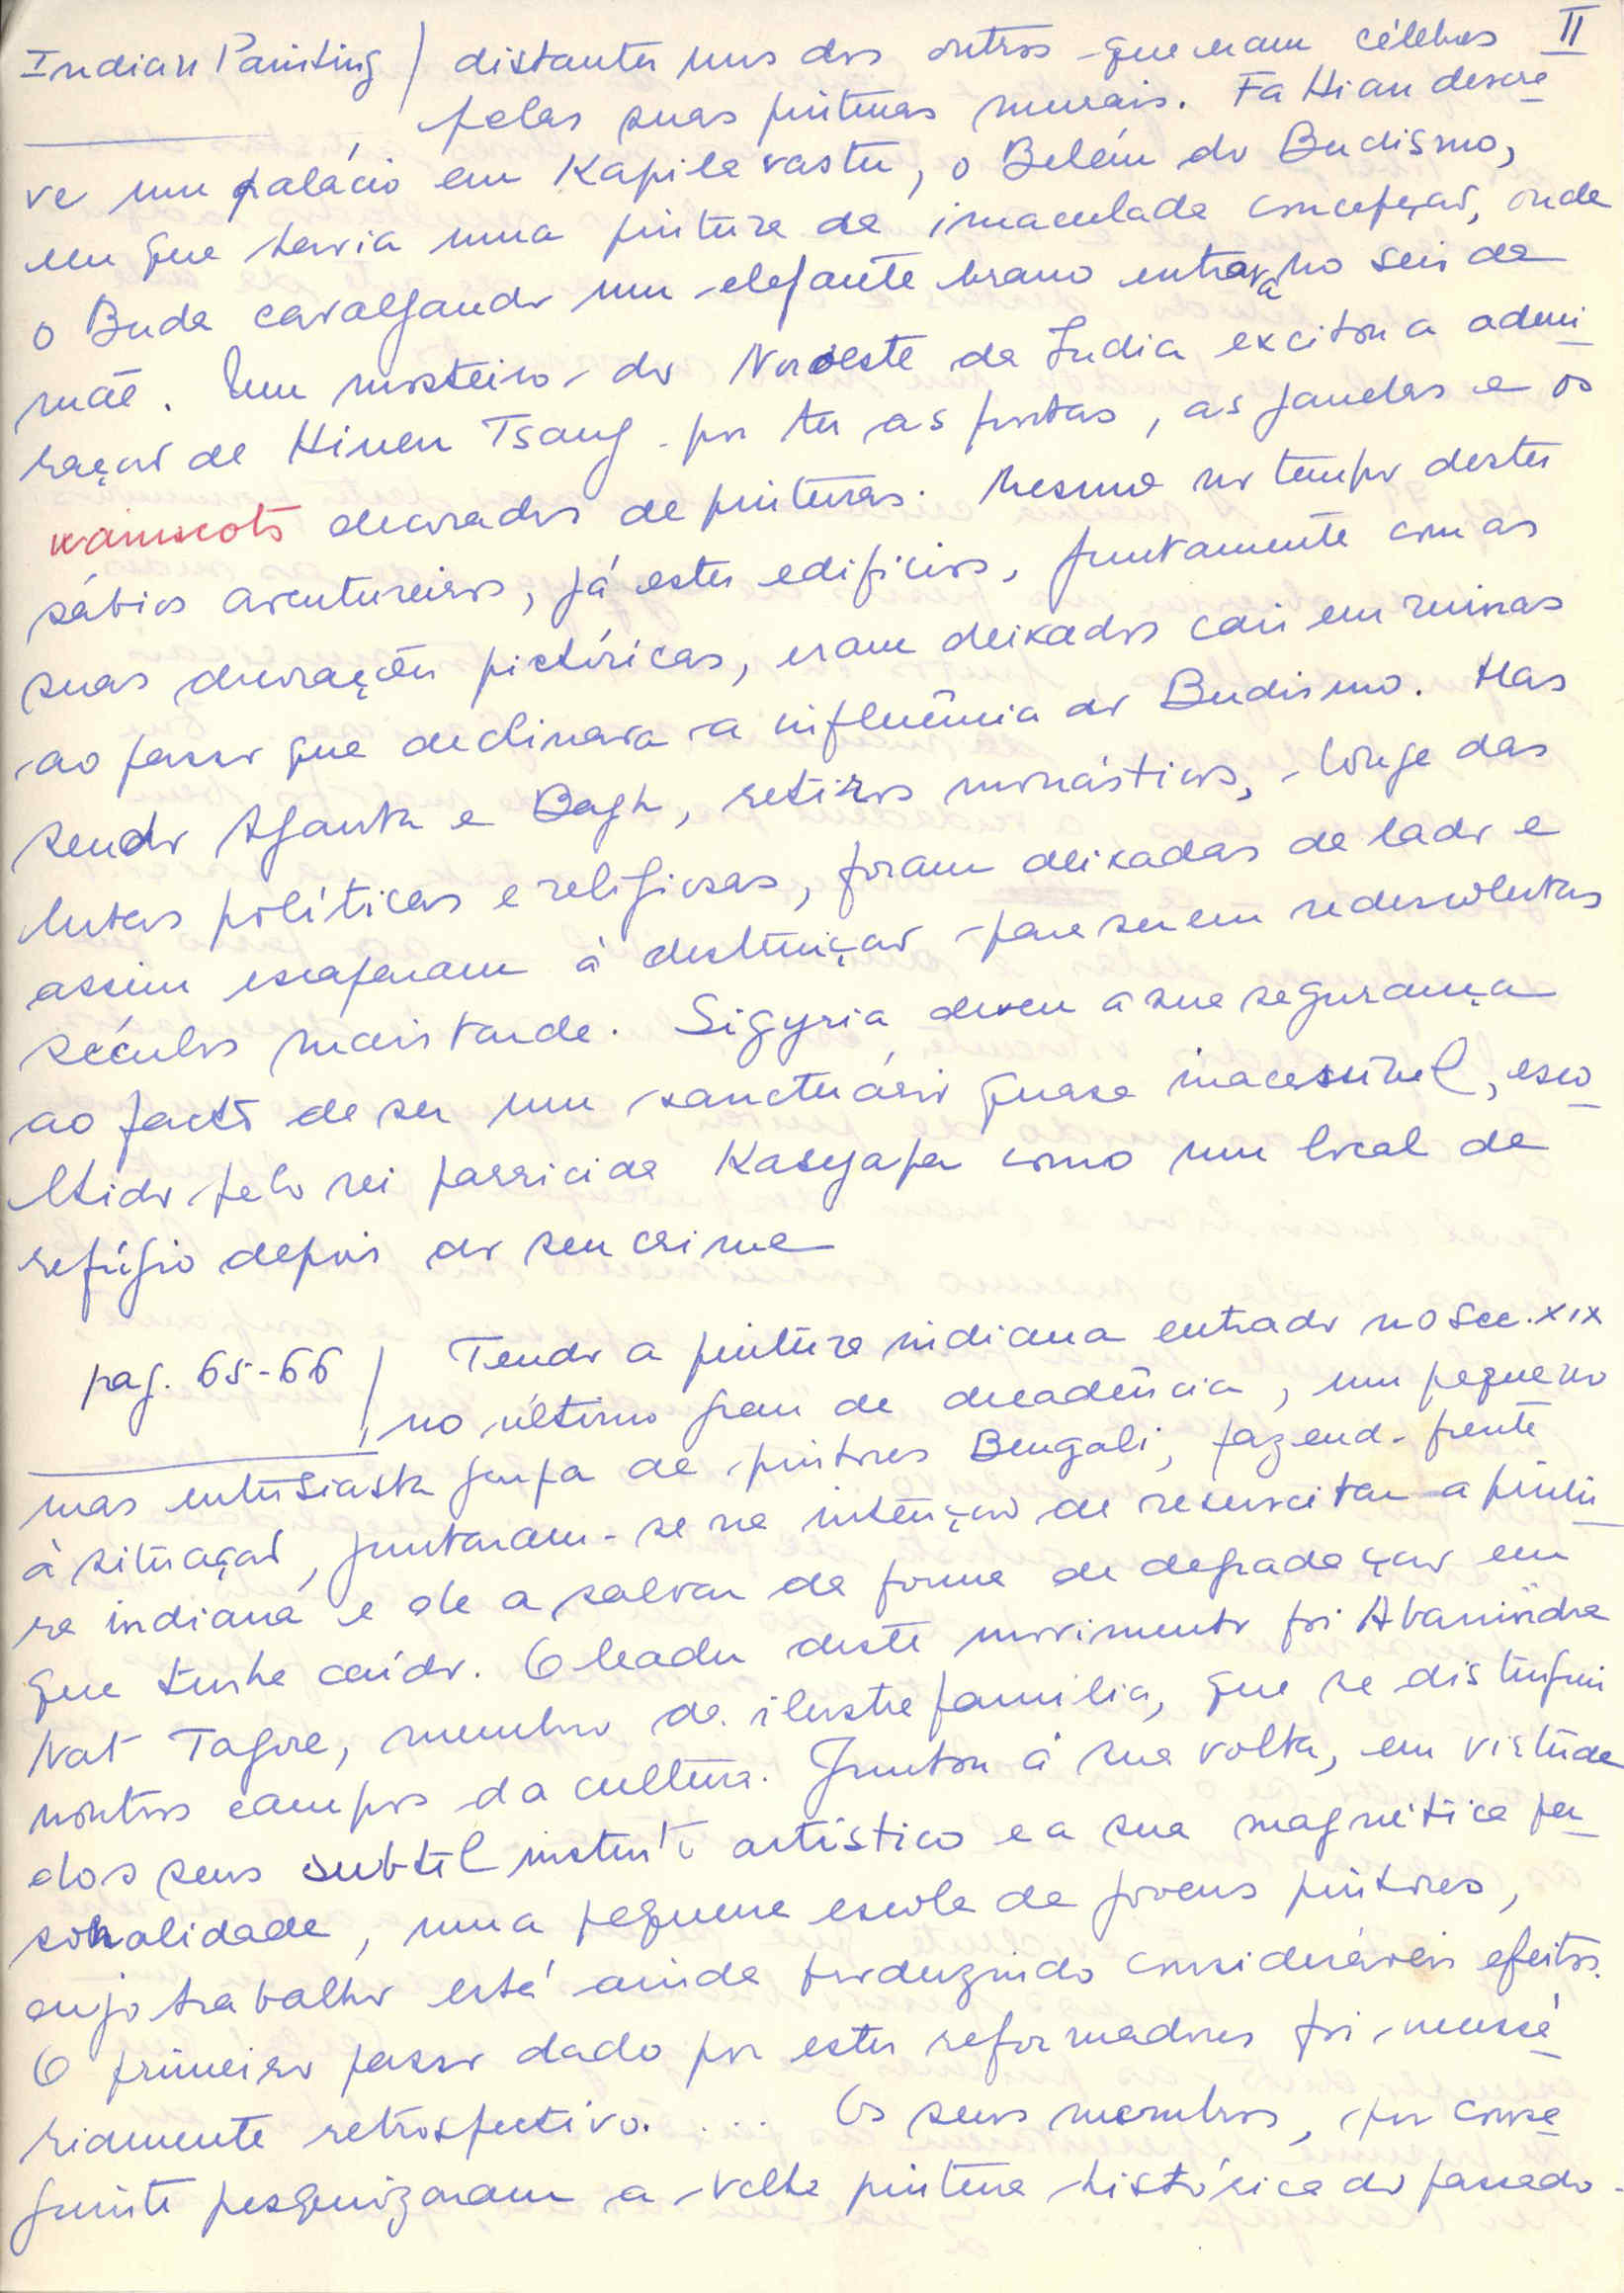 Indian Painting / distantes uns dos outros que eram célebres II
pelas suas pinturas murais. Fa Hian descre
ve um palácio em Kapilavastu, o Belém do Budismo,
em que havia uma pintura da imaculada concepção, onde
o Buda cavalgando um elefante branco entrava no seio da
mãe. Um mosteiro do Noroeste da India excitou a admi
ração de Hiuen Tsang por ter as portas, as janelas e os
wainscots decorados de pinturas. Mesmo no tempo destes
sábios aventureiros, já estes edifícios, juntamente com as
suas decorações pictóricas, eram deixados cair em ruinas
ao passo que declinava a influência do Budismo. Mas
sendo Ajanta e Bagh, retiros monásticos, longe das
lutas políticas e religiosas, foram deixadas de lado e
assim escaparam à destruição para serem redescobertas
séculos mais tarde. Sigyria deveu a sua segurança
ao facto de ser um sanctuário quase inacessível, esco
lhido pelo rei parricida Kasyapa como um local de
refúgio depois do seu crime
pag. 65-66 / Tendo a pintura indiana entrado no sec. XIX
no último grau de decadência, um pequeno
mas entusiasta grupo de pintores Bengali, fazend. frente
à situação, juntaram-se na intenção de resuscitar a pintu
ra indiana e de a salvar da forma de degradação em
que tinha caído. O leader deste movimento foi Abanindra
Nat Tagore, membro da ilustre familia, que se distinguiu
noutros campos da cultura. Juntou à sua volta, em virtude
dos seus subtil instinto artístico e a sua magnética per
sonalidade, uma pequena escola de jovens pintores,
cujo trabalho está ainda produzindo consideráveis efeitos.
O primeiro passo dado por estes reformadores foi necessá
riamente retrospectivo. ... Os seus membros, por conse
guinte pesquizaram a velha pintura histórica do passado.